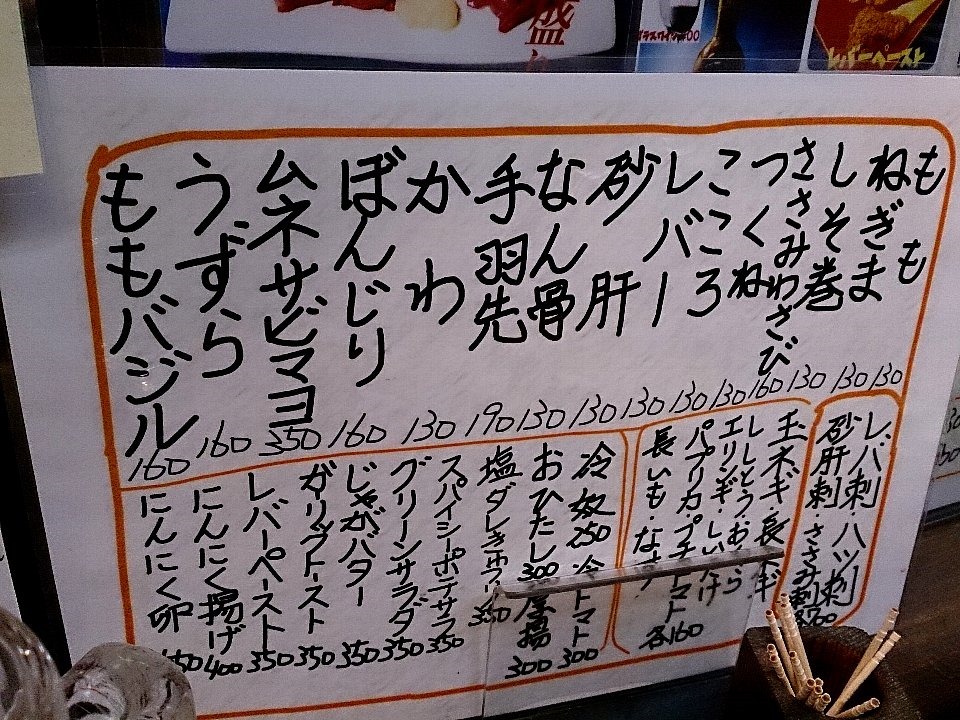 盛
レバーペースト
もも 130
ねぎま 130
しそ巻 130
ささみわさび 160
つくね 130
こころ 130
レバー 130
砂肝 130
なん骨 130
手羽先 190
かわ 130
ぼんじり 160
ムネサビマヨ 350
うずら 160
ももバジル 160
レバ刺 ハツ刺
砂肝刺・ささみ刺
玉ネギ・長ネギ
ししとう・おくら
エリンギ・しいたけ
パプリカ・プチトマト
長いも・なす
各160
冷奴250 冷トマト 300
おひたし300 厚揚 300
塩ダレきゅうり 350
スパイシーポテサラ 350
グリーンサラダ 350
じゃがバター 350
ガーリックトースト 350
レバーペースト 350
にんにく揚げ 400
にんにく卵 150